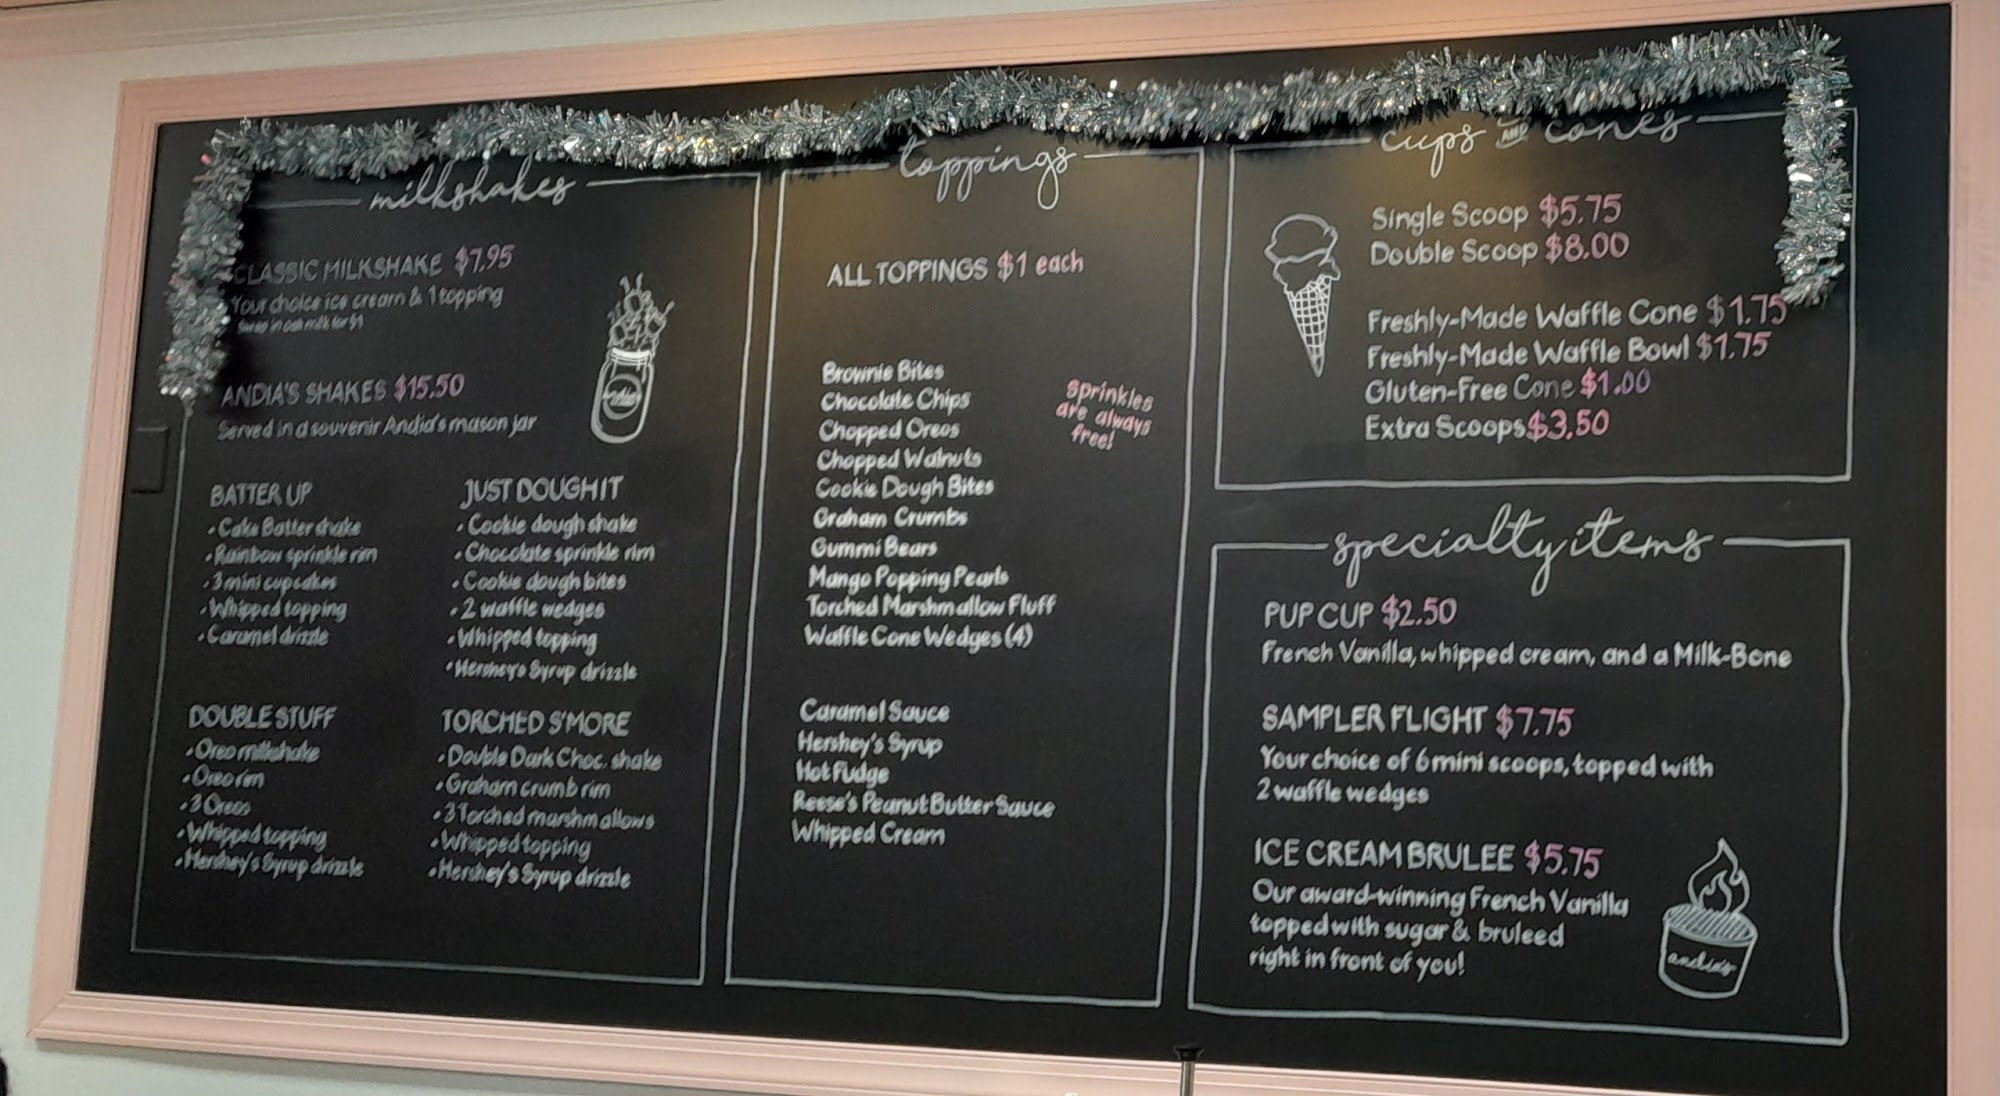 milkshakes
CLASSIC MILKSHAKE $7.95
Your choice ice cream & 1 topping
Swap in oat milk for $1
ANDIA'S SHAKES $15.50
Served in a souvenir Andia's mason jar
BATTER UP
• Cake Batter shake
• Rainbow sprinkle rim
• 3 mini cupcakes
• Whipped topping
• Caramel drizzle
JUST DOUGH IT
• Cookie dough shake
• Chocolate sprinkle rim
• Cookie dough bites
• 2 waffle wedges
• Whipped topping
• Hershey's Syrup drizzle
DOUBLE STUFF
• Oreo milkshake
• Oreo rim
• 3 Oreos
• Whipped topping
• Hershey's Syrup drizzle
TORCHED S'MORE
• Double Dark Choc. shake
• Graham crumb rim
• 3 Torched marshmallows
• Whipped topping
• Hershey's Syrup drizzle
toppings
ALL TOPPINGS $1 each
Brownie Bites
Chocolate Chips
Chopped Oreos
Chopped Walnuts
Cookie Dough Bites
Graham Crumbs
Gummi Bears
Mango Popping Pearls
Torched Marshmallow Fluff
Waffle Cone Wedges (4)
sprinkles
are always
free!
Caramel Sauce
Hershey's Syrup
Hot Fudge
Reese's Peanut Butter Sauce
Whipped Cream
cups AND cones
Single Scoop $5.75
Double Scoop $8.00
Freshly-Made Waffle Cone $1.75
Freshly-Made Waffle Bowl $1.75
Gluten-Free Cone $1.00
Extra Scoops $3.50
specialty items
PUP CUP $2.50
French Vanilla, whipped cream, and a Milk-Bone
SAMPLER FLIGHT $7.75
Your choice of 6 mini scoops, topped with
2 waffle wedges
ICE CREAM BRULEE $5.75
Our award-winning French Vanilla
topped with sugar & bruleed
right in front of you!
andia's